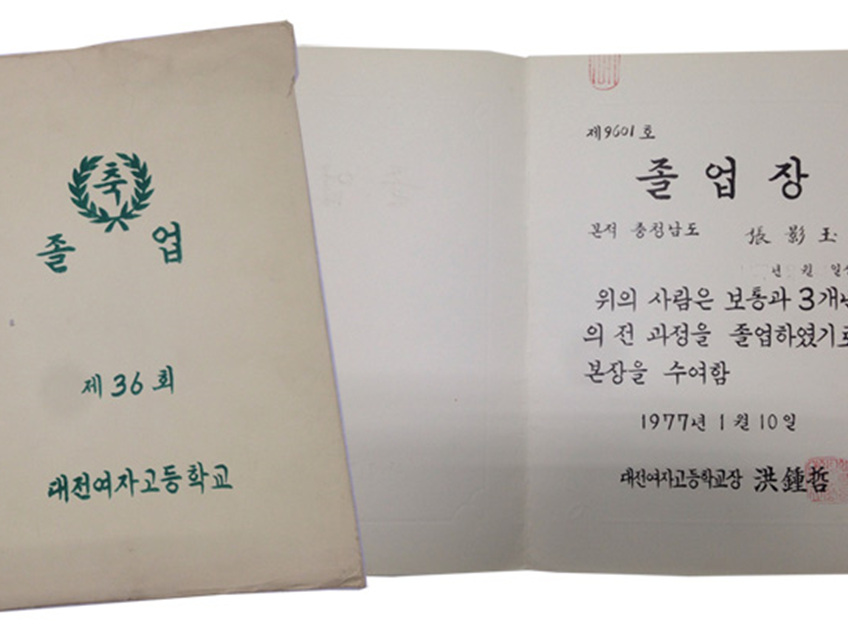 축
졸 업
제 36 회
대전여자고등학교
제9601호
졸 업 장
본적 충청남도 張影玉
년 월 일생
위의 사람은 보통과 3개년
의 전 과정을 졸업하였기로
본장을 수여함
1977년 1월 10일
대전여자고등학교장 洪鍾哲